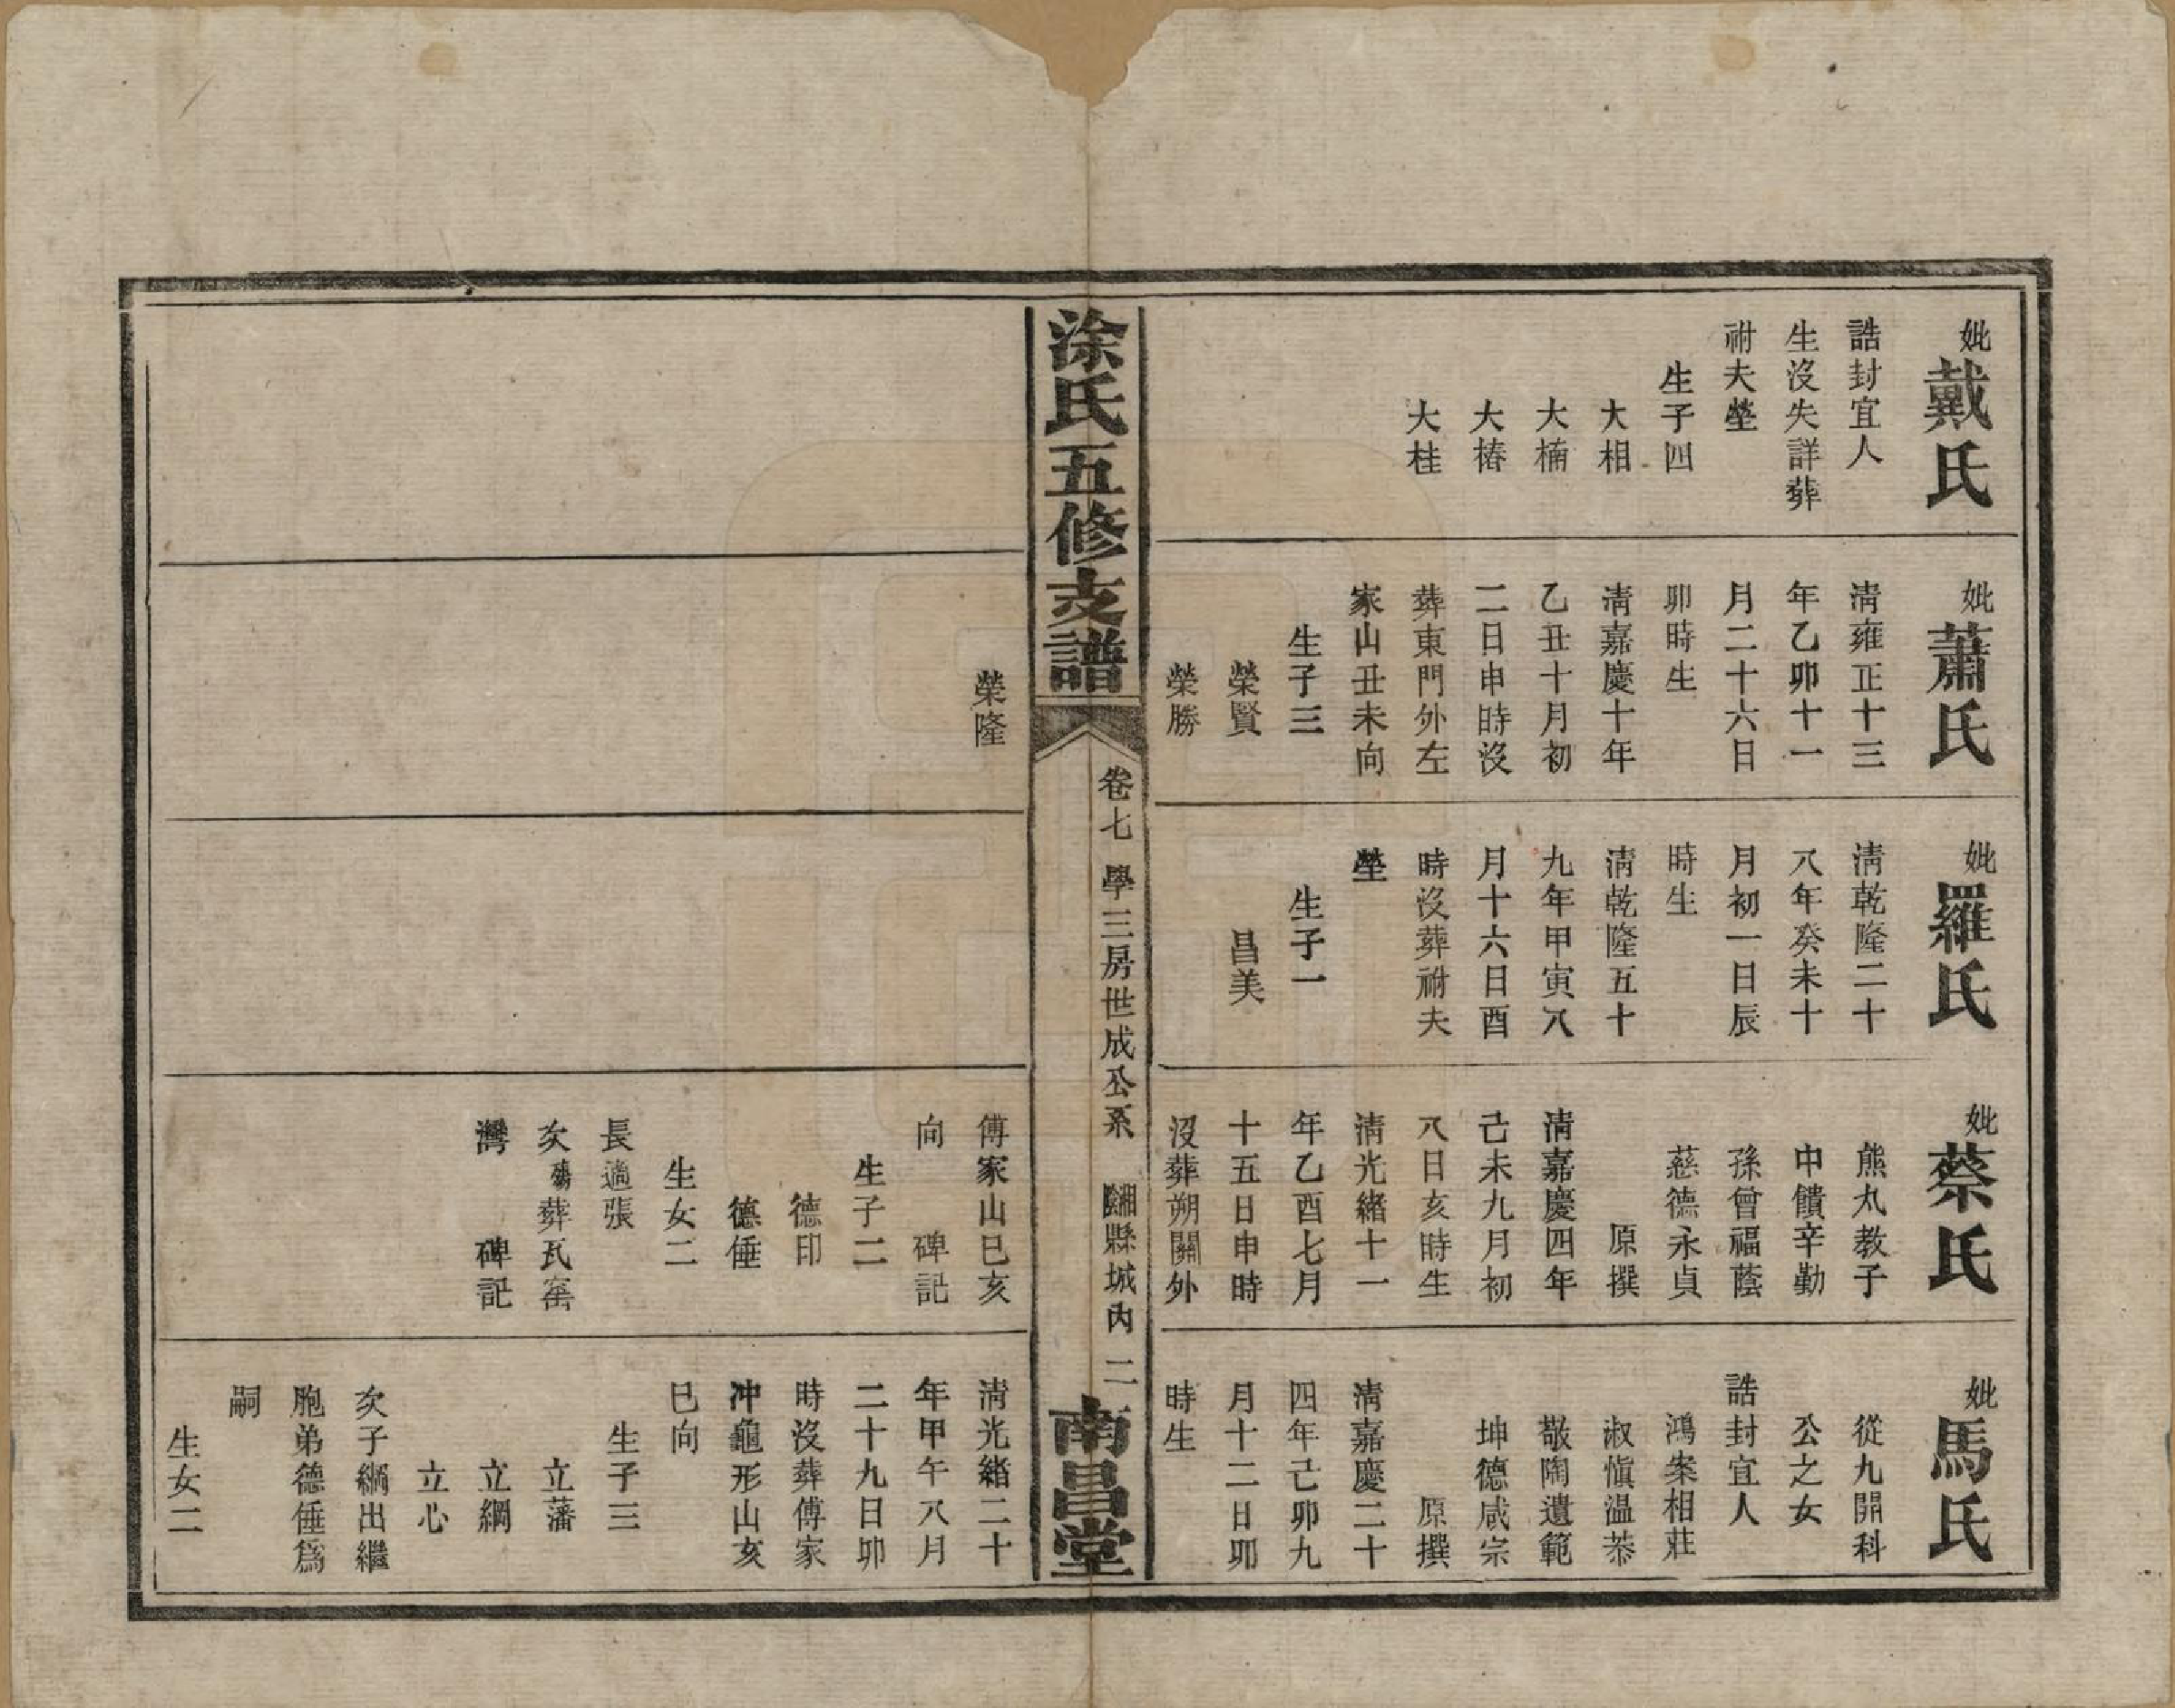 妣戴氏
誥封宜人
生沒失詳葬
祔夫塋
生子四
大相
大楠
大椿
大桂
妣蕭氏
清雍正十三
年乙卯十一
月二十六日
卯時生
清嘉慶十年
乙丑十月初
二日申時沒
葬東門外左
家山丑未向
生子三
榮賢
榮勝
榮隆
妣羅氏
清乾隆二十
八年癸未十
月初一日辰
時生
清乾隆五十
九年甲寅八
月十六日酉
時沒葬祔夫
塋
生子一
昌美
妣蔡氏
熊丸教子
中饋辛勤
孫曾福蔭
慈德永貞
原撰
清嘉慶四年
己未九月初
八日亥時生
清光緒十一
年乙酉七月
十五日申時
沒葬朔關外
傅家山巳亥
向 碑記
生子二
德印
德倕
生女二
長適張
次殤葬瓦窰
灣 碑記
妣馬氏
從九開科
公之女
誥封宜人
鴻案相莊
淑愼温恭
敬陶遺範
坤德咸宗
原撰
清嘉慶二十
四年己卯九
月十二日卯
時生
清光緒二十
年甲午八月
二十九日卯
時沒葬傅家
冲龜形山亥
巳向
生子三
立藩
立綱
立心
次子綱出繼
胞弟德倕爲
嗣
生女二
涂氏五修支譜
卷七 學三房世成公系 湘陰縣城内 二
南昌堂